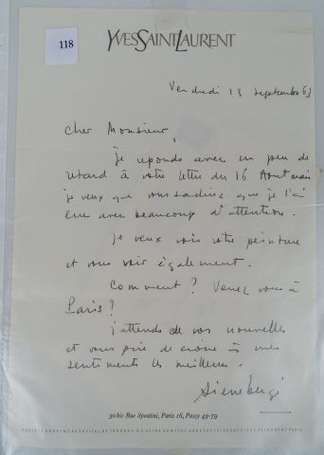 118
YVESSAINTLAURENT
Vendredi 13 septembre 63
Cher Monsieur,
je reponds avec un peu de
retard à votre lettre du 16 Aout mais
je veux que vous sachiez que je l'ai
lue avec beaucoup d'attention.
Je veux voir votre peinture
et vous voir également.
Comment? Venez vous à
Paris?
J'attends de vos nouvelles
et vous prie de croire à mes
sentiments les meilleurs.
Pierre Bergé
30 bis Rue Spontini, Paris 16, Passy 43-79